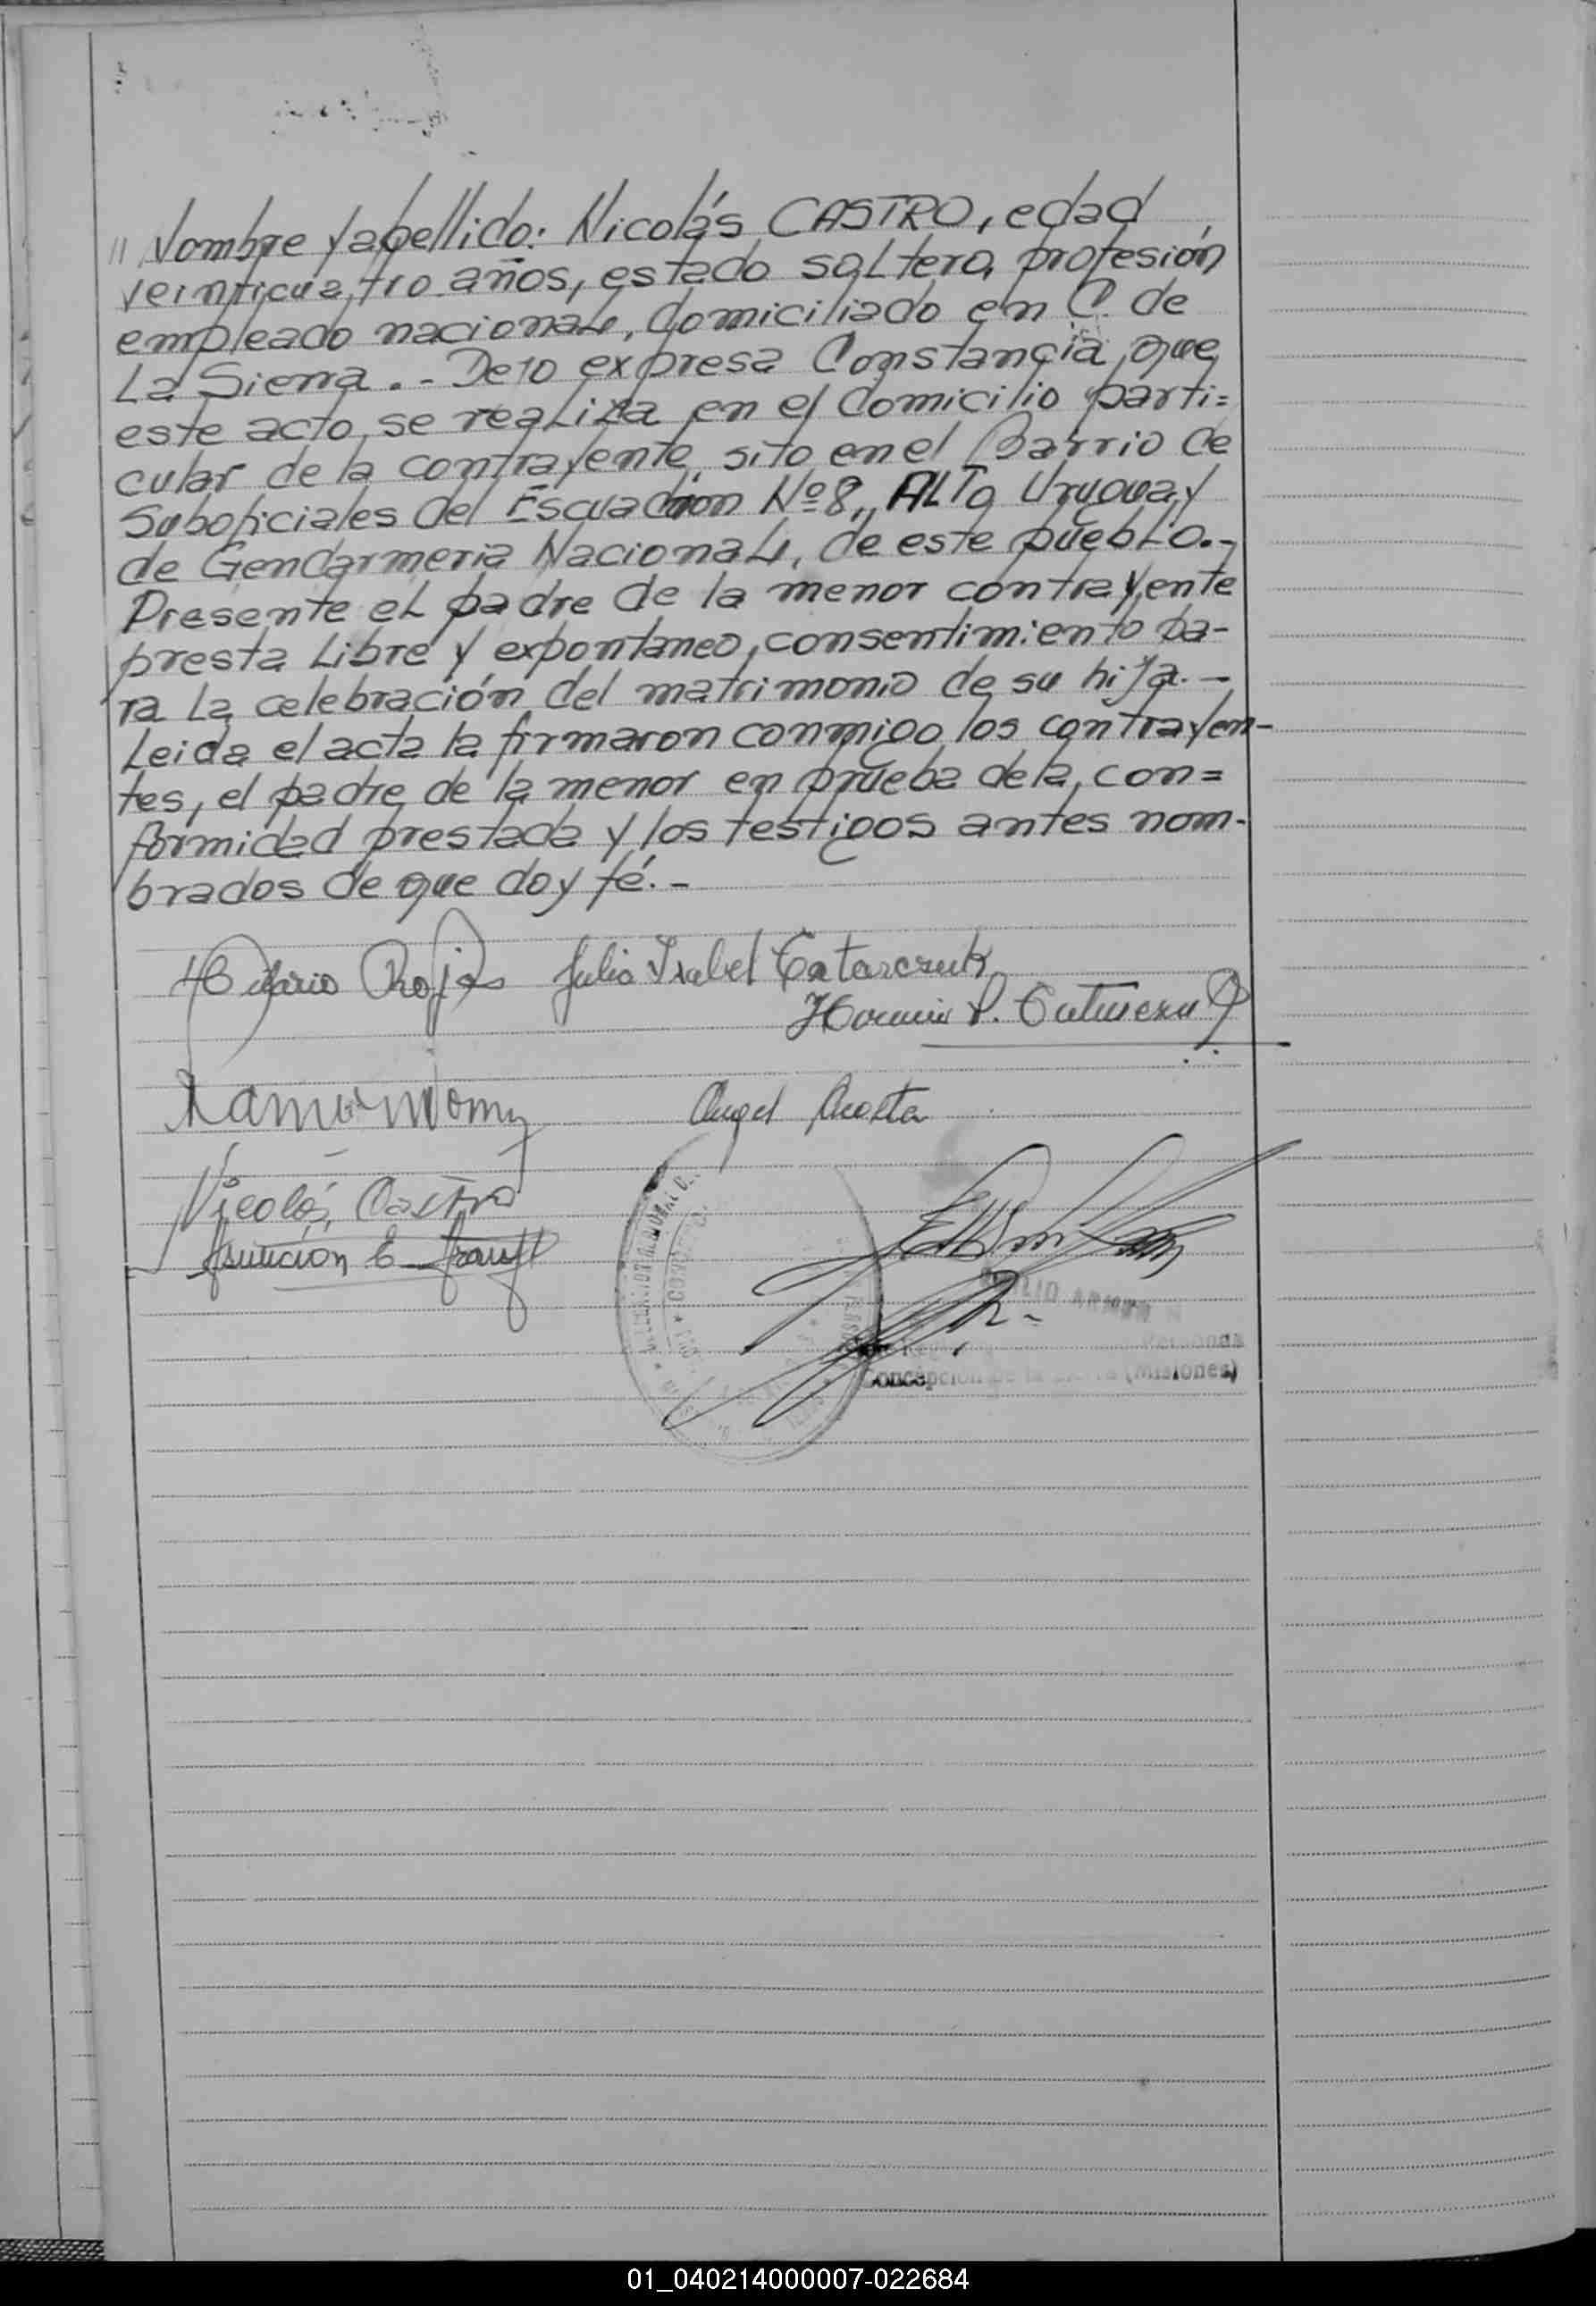 // Nombre y apellido: Nicolás CASTRO, edad
veinticuatro años, estado soltero, profesión
empleado nacional, domiciliado en C. de
La Sierra. - Dejo expresa Constancia que
este acto se realiza en el domicilio parti=
cular de la contrayente, sito en el Barrio de
Suboficiales del Escuadrón Nº 8 „ ALTO Uruguay
de Gendarmeria Nacional, de este pueblo. -
Presente el padre de la menor contrayente
presta libre y expontaneo, consentimiento pa-
ra la celebración del matrimonio de su hija. -
Leida el acta la firmaron conmigo los contrayen-
tes, el padre de la menor en prueba de la, con=
formidad prestada y los testigos antes nom-
brados de que doy fé. -
Hilario Rojas Julia Isabel Catarczuk
Angel Acosta
Nicolás Castro
Asunción E.
Concepción de la (Misiones)
01_040214000007-022684